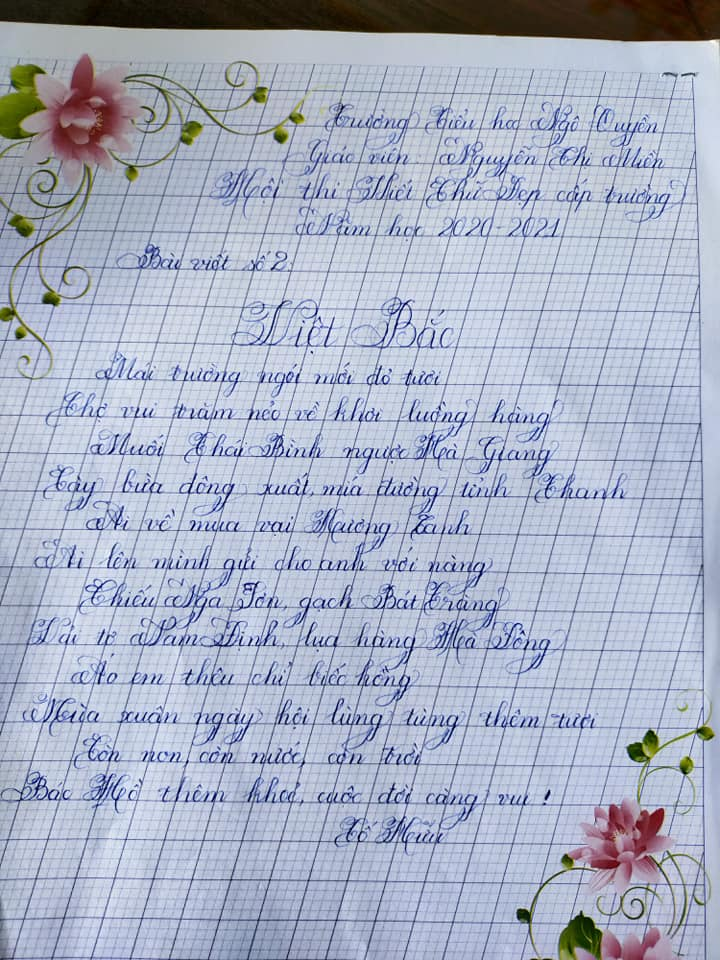 Trường Tiểu học Ngô Quyền
Giáo viên: Nguyễn Thị Miền
Hội thi Viết Chữ Đẹp cấp trường
Năm học 2020-2021
Bài viết số 2:
Việt Bắc
Mái trường ngói mới đỏ tươi
Chợ vui trăm nẻo về khơi luồng hàng
Muối Thái Bình ngược Hà Giang
Cày bừa đông xuất, mía đường tỉnh Thanh
Ai về mua vại Hương Canh
Ai lên mình gửi cho anh với nàng
Chiếu Nga Sơn, gạch Bát Tràng
Vải tơ Nam Định, lụa hàng Hà Đông
Áo em thêu chỉ biếc hồng
Mùa xuân ngày hội lùng tùng thêm tươi
Còn non, còn nước, còn trời
Bác Hồ thêm khoẻ, cuộc đời càng vui !
Tố Hữu